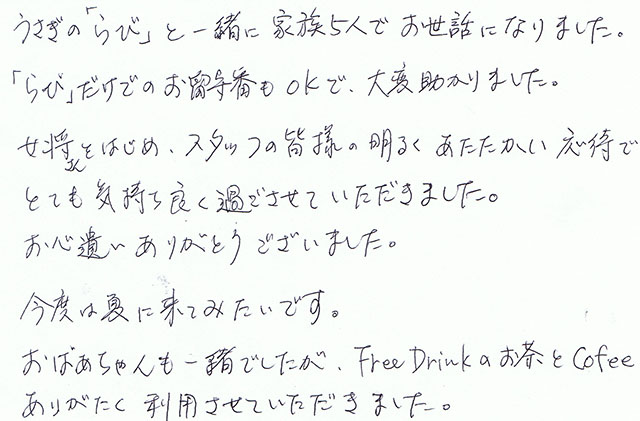 うさぎの「らび」と一緒に家族5人でお世話になりました。
「らび」だけでのお留守番もOKで、大変助かりました。
女将さんをはじめ、スタッフの皆様の明るくあたたかい応待で
とても気持ち良く過ごさせていただきました。
お心遣いありがとうございました。
今度は夏に来てみたいです。
おばあちゃんも一緒でしたが、Free Drinkのお茶とCofee
ありがたく利用させていただきました。